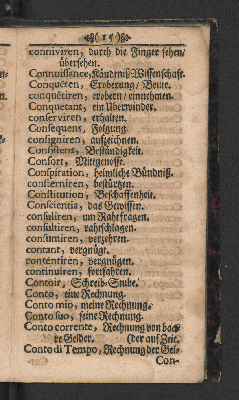 ( 15 )
conniviren, durch die Finger sehen/
übersehen.
Connoissance, Kändniß-Wissenschaft.
Conquéten, Eroberung/ Beute.
conquétiren, erobern/ einnehmen.
Conquetant, ein Uberwinder.
conserviren, erhalten.
Consequens, Folgung.
consigniren, aufzeichnen.
Consistens, Beständigkeit.
Consort, Mitgenosse.
Conspiration, heimliche Bündniß.
consterniren, bestürtzen.
Constitution, Beschaffenheit.
Conscientia, das Gewissen.
consuliren, um Raht fragen.
consultiren, rahtschlagen.
consumiren, verzehren.
contant, vergnügt.
contentiren, vergnügen.
continuiren, fortfahren.
Contoir, Schreib-Stube.
Conto, eine Rechnung.
Conto mio, meine Rechnung.
Conto suo, seine Rechnung.
Conto corrente, Rechnung von baa-
re Gelder. (der auf Zeit.
Conto di Tempo, Rechnung der Gel-
Con-